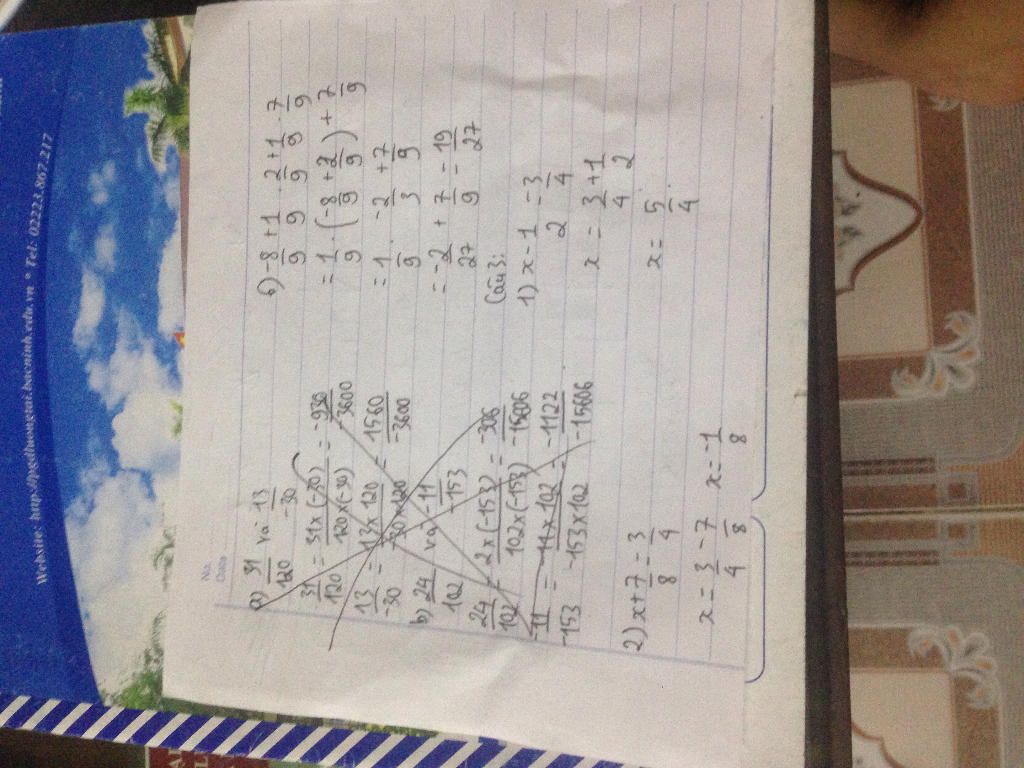 Website: http://pgdluongtai.bacninh.edu.vn * Tel: 02223.867.217
No.
Date
a) 31/120 và 13/-30
31/120 = 31x(-30)/120x(-30) = -930/-3600
13/-30 = 13x120/-30x120 = 1560/-3600
b) 24/102 và -11/-153
24/102 = 2x(-153)/102x(-153) = -306/-15606
-11/-153 = -11x102/-153x102 = -1122/-15606
2) x + 7/8 = 3/4
x = 3/4 - 7/8
x = -1/8
6) -8/9 + 1/9 . 2/9 + 1/9 . 7/9
= 1/9 . (-8/9 + 2/9) + 7/9
= 1/9 . -2/3 + 7/9
= -2/27 + 7/9 = 19/27
Câu 3:
1) x - 1/2 = 3/4
x = 3/4 + 1/2
x = 5/4